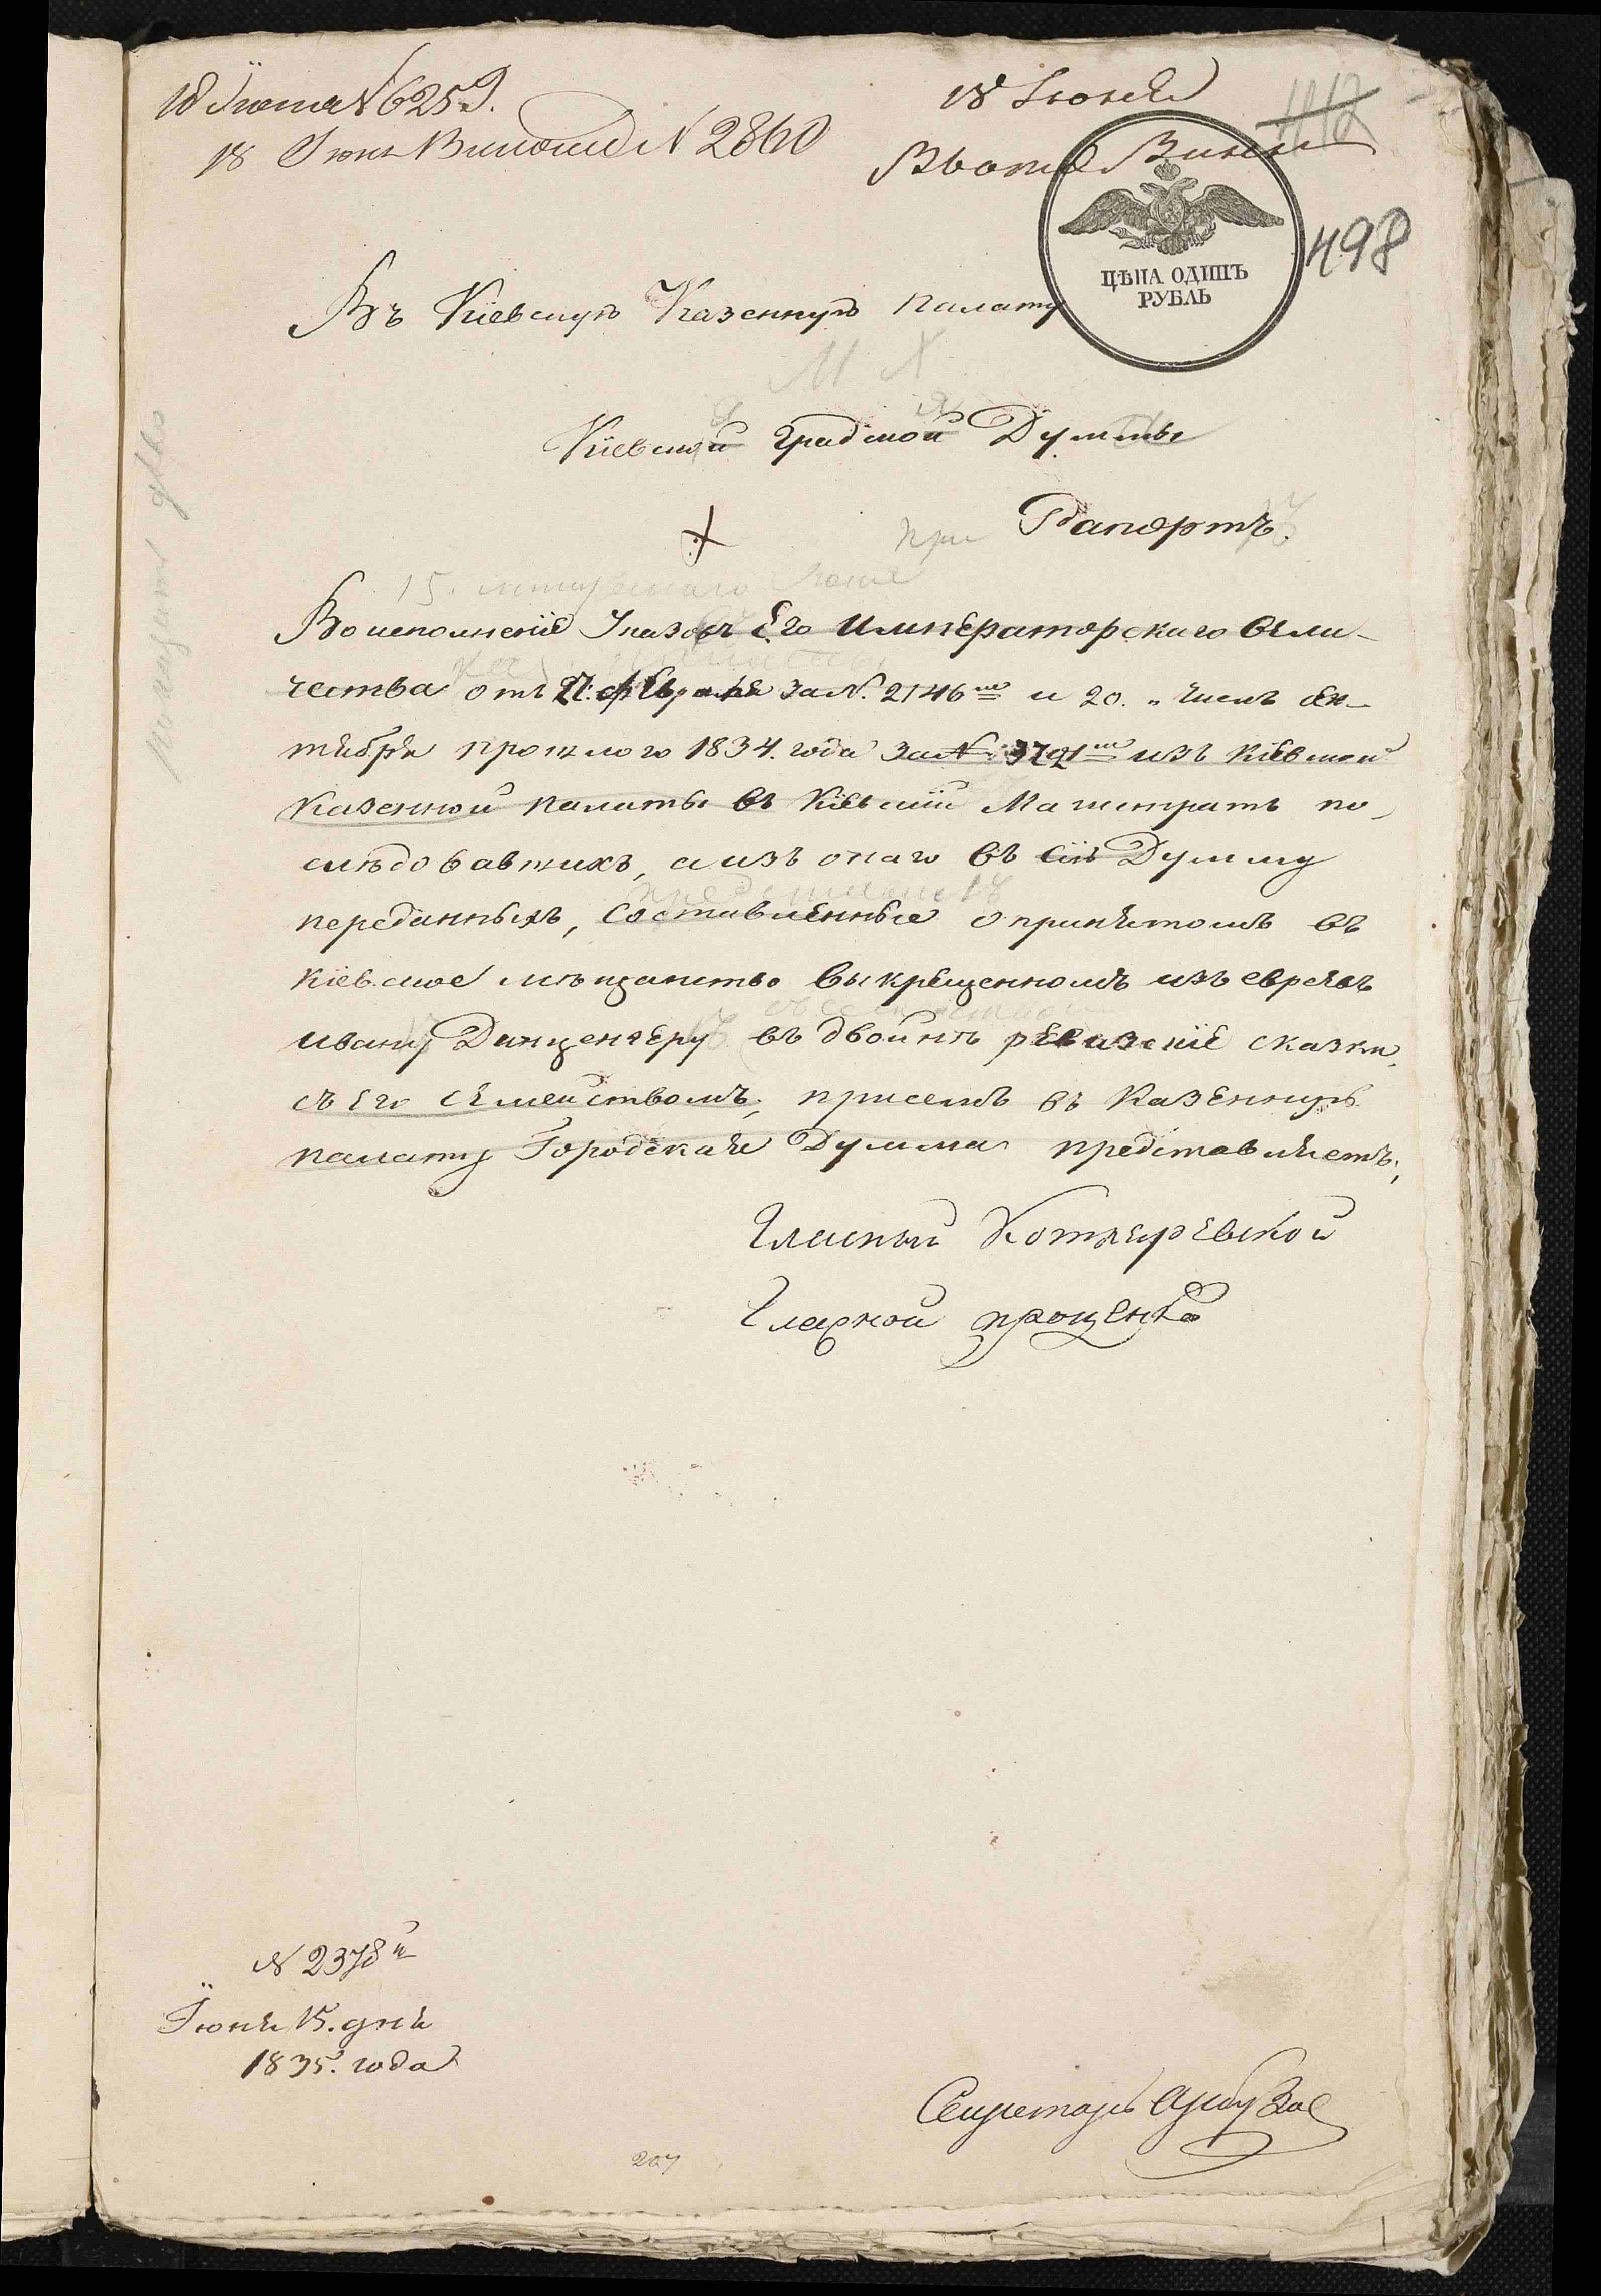 18 Іюня №6259.
18 Июня № 2860
18 Іюня
412
498
ЦѢНА ОДИНЪ
РУБЛЬ
Въ Кіевскую Казенную палату
Кіевской градской Думмы
при Рапортъ.
15. Іюня
Во исполненіе Указовъ Его Императорскаго Вели-
чества отъ 27. февраля за №. 2146мъ и 20. „ числъ Ок-
тября прошлого 1834. года за № 37291мъ изъ Кіевской
Казенной палаты въ Кіевскій Магистратъ по-
слѣдовавшихъ, а изъ онаго въ сію Думму
переданныхъ, составленные о принятомъ въ
Кіевское мѣщанство выкрещенномъ изъ евреевъ
Ивану Данценгеру въ двойнѣ ревизскіе сказки
съ Его Семействомъ, присемъ въ Казенную
палату Городская Думма представляетъ,
Гласный Котляревской
Гласной проценко
№ 2378й
Іюня 15. дня
1835. года
Секретарь
207